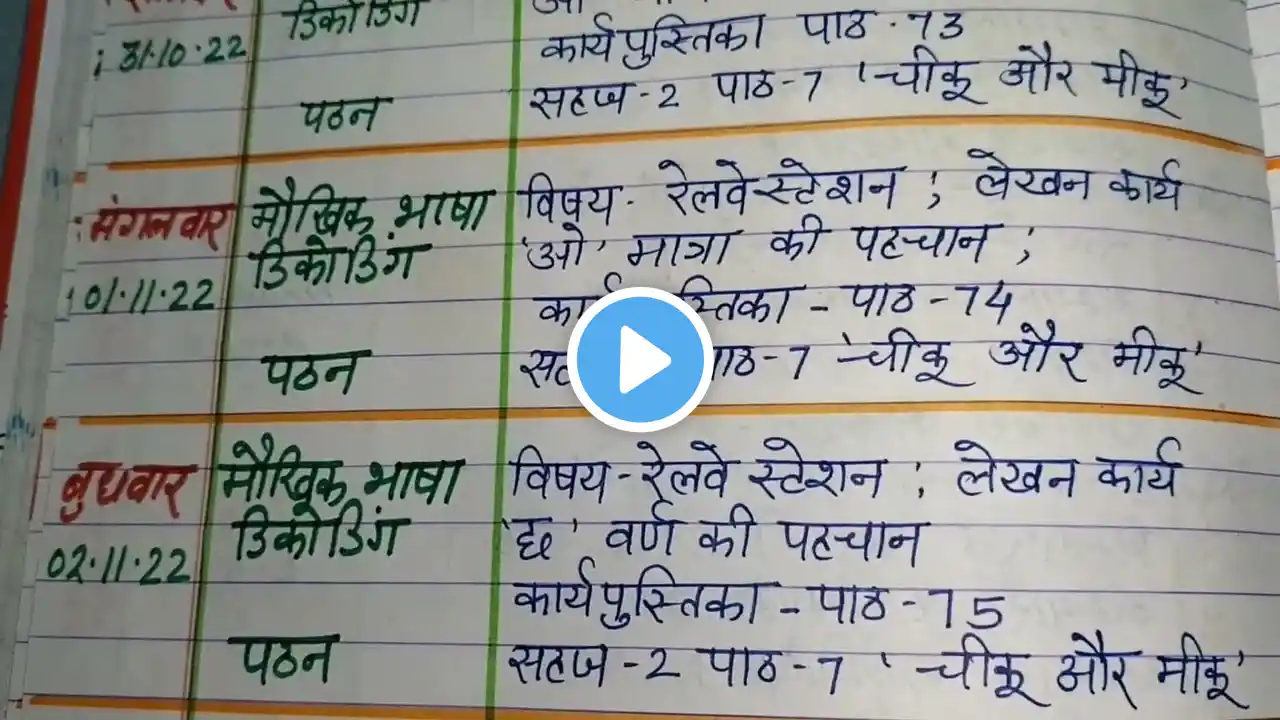 डिकोडिंग
कार्यपुस्तिका पाठ - 73
31.10.22
पठन सहज - 2 पाठ - 7 'चीकू और मीकू'
मंगलवार मौखिक भाषा विषय - रेलवे स्टेशन ; लेखन कार्य
डिकोडिंग 'ओ' मात्रा की पहचान ;
01.11.22 कार्यपुस्तिका - पाठ - 74
पठन पाठ - 7 'चीकू और मीकू'
बुधवार मौखिक भाषा विषय - रेलवे स्टेशन ; लेखन कार्य
डिकोडिंग 'छ' वर्ण की पहचान
02.11.22 कार्यपुस्तिका - पाठ - 75
पठन सहज - 2 पाठ - 7 'चीकू और मीकू'